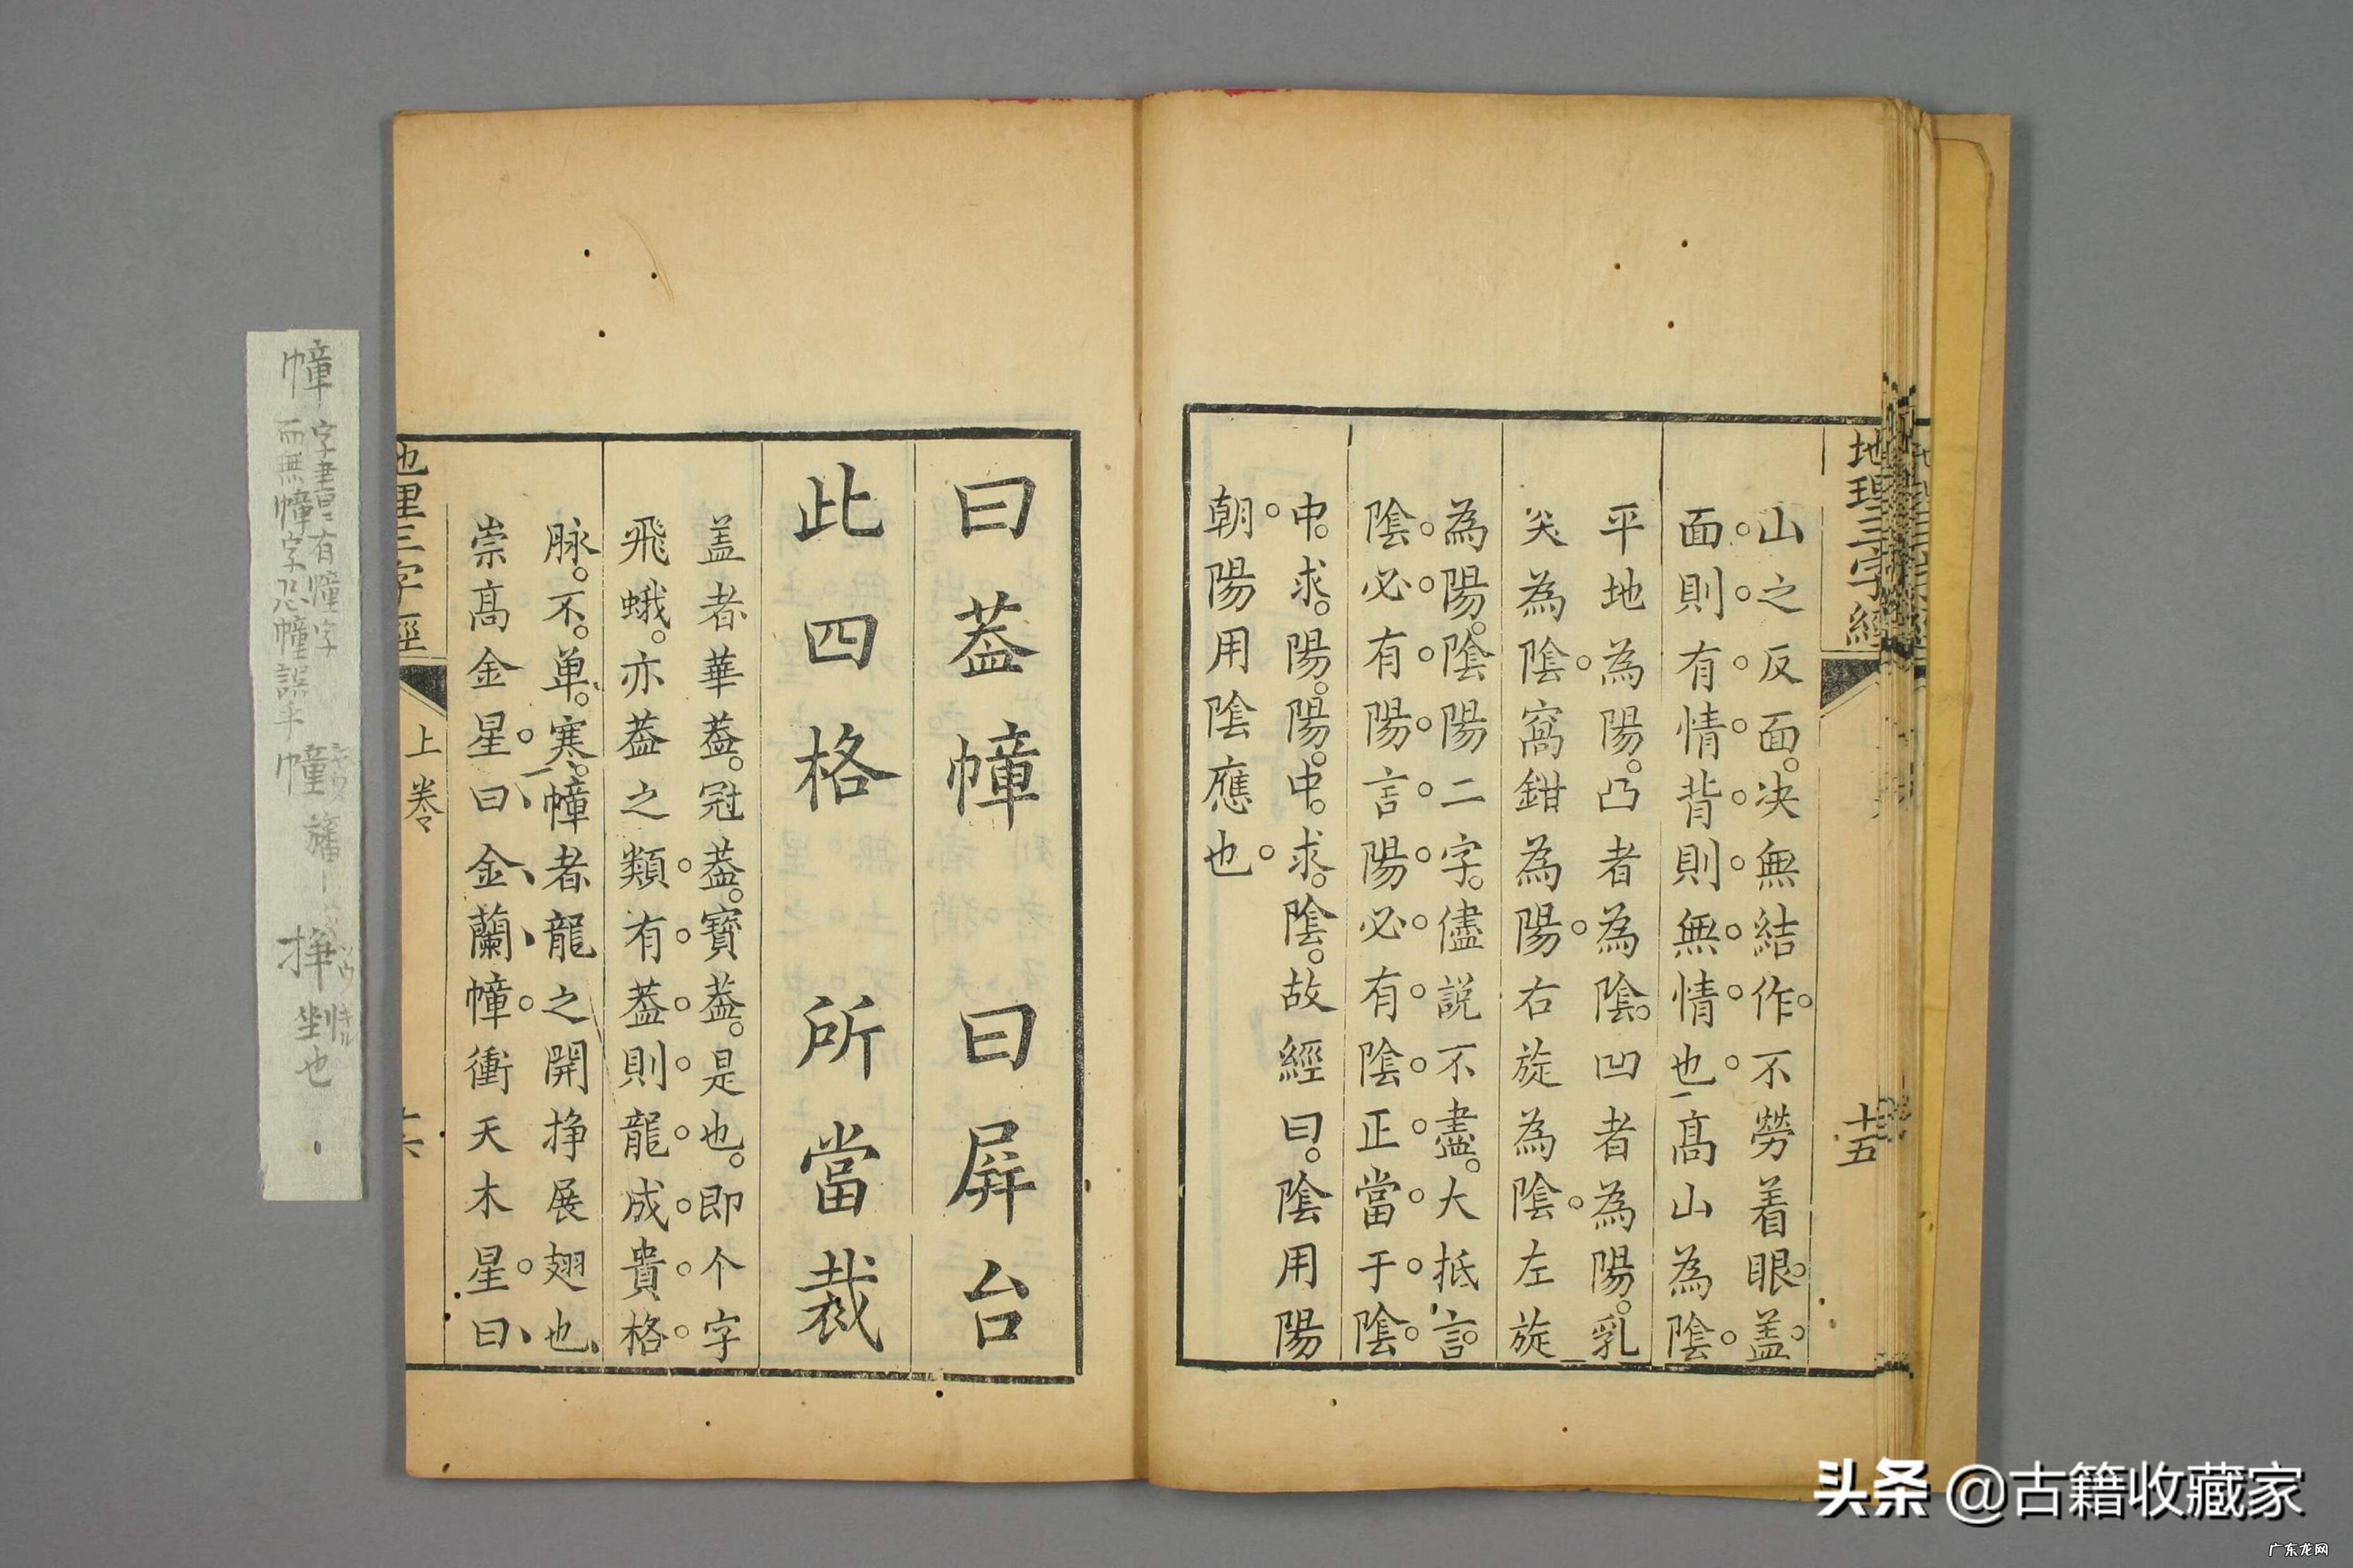 地理三字經
十五
山之反面。决無結作。不勞着眼。盖。
面。則。有。情。背。則。無。情。也。高山為陰。
平地為陽。凸者為陰。凹者為陽。乳
尖為陰。窩鉗為陽。右旋為陰。左旋
為陽。陰陽二字。儘説不盡。大抵言。
陰。必。有。陽。言。陽。必。有。陰。正。當。于。陰。
中。求。陽。陽。中。求。陰。故經曰。陰用陽
朝。陽用陰應也。
曰蓋幛曰屏台
此四格所當裁
盖者華蓋。冠蓋。寶蓋。是也。即个字
飛蛾。亦蓋之類。有。蓋。則。龍。成。貴。格。
脉。不。单。寒。幛者龍之開挣展翅也、
崇高金星。曰、金、蘭、幛。衝天木星。曰、
地理三字經
上卷
十六
幛
字書有幢字
而無幛字恐幢誤乎
幢
旛
挣
剉也
头条 @古籍收藏家
广东龙网